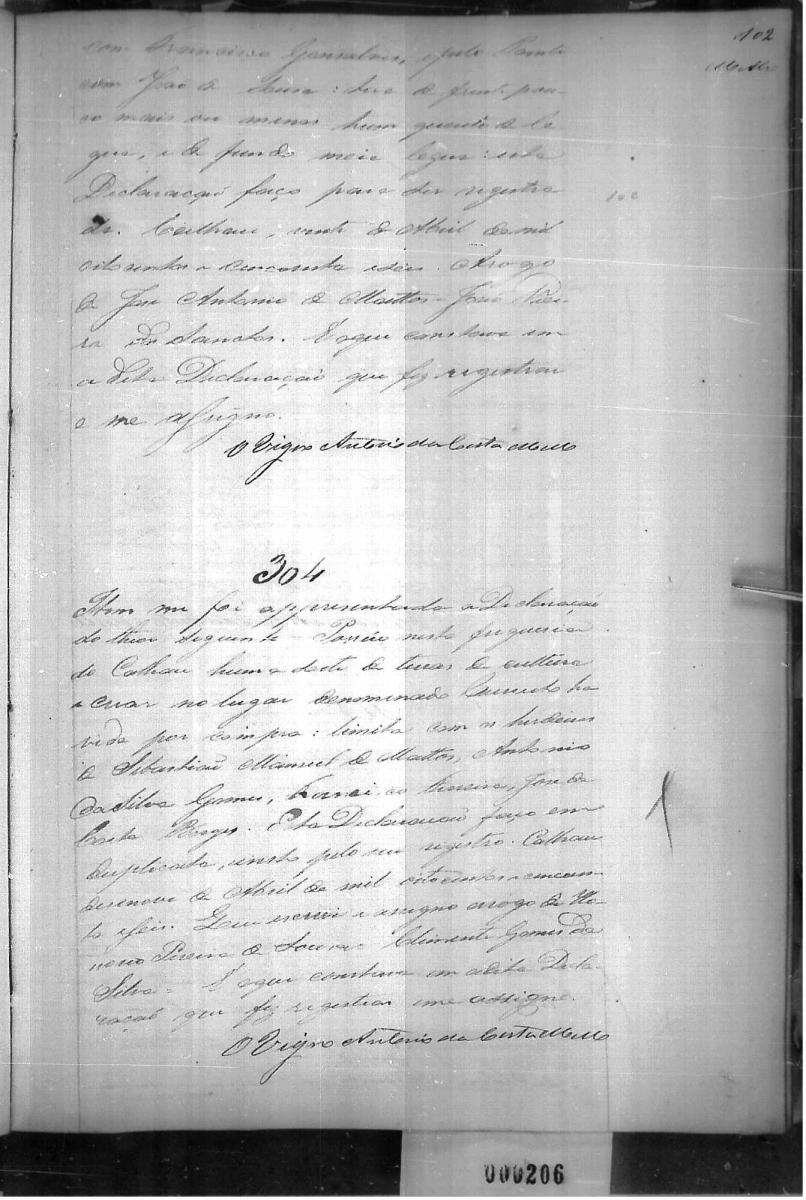 102
com Francisco Gonsalves, e pelo
com João de Sousa: tera de frente pou-
co mais ou menos hum quarto de le-
goa, e de fundo meia legoa: esta
Declaração faço para ser registra
da. Calhau, vinte de Abril de mil
oito centos e cincoenta e seis. Arogo
de José Antonio de Mattos = João Viei-
ra dos Santos. E o que constava em
a dita Declaração que fiz registrar
e me assigno.
O Vigro Antonio da Costa Mello
102
304
Item me foi appresentada a Declaração
do theor seguinte = Possúo nesta freguesia
do Calhau huma sorte de terras de cultura
e criar no lugar denominado ha
vida por compra: limita com os herdeiros
de Sebastião Manuel de Mattos, Antonio
da Silva Gomes, Francisco Ferreira, José da
Costa Borges. Esta Declaração faço em
duplicata, pelo seu registro. Calhau
desenove de Abril de mil oitocentos e cincoen-
ta e seis. E eu escrevi e assigno arogo de
Pereira de Souza = Clemente Gomes da
Silva = E o que constava em a dita Decla-
ração que fiz registrar e me assigno.
O Vigro Antonio da Costa Mello
000206